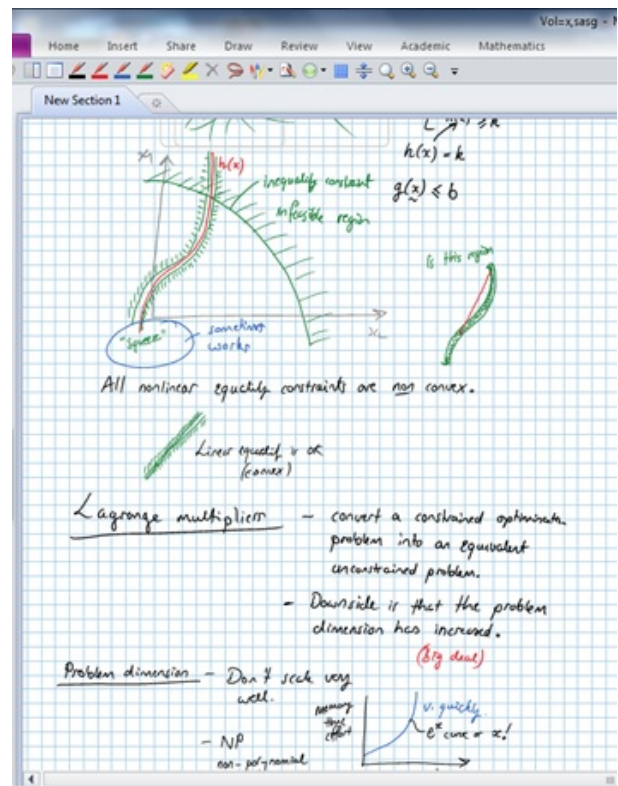 Vol=x,sasg - N
Home Insert Share Draw Review View Academic Mathematics
New Section 1
≤ k
h(x) = k
g(x) ≤ b
h(x)
inequality constraint
infeasible region
is this region
"squeeze"
sometimes
works
All nonlinear equality constraints are non convex.
Linear equality is ok
(convex)
Lagrange multipliers - convert a constrained
problem into an equivalent
unconstrained problem.
- Downside is that the problem
dimension has increased.
(big deal)
Problem dimension - Don't scale very
well.
memory
time
effort
v. quickly.
- NP
non-polynomial
e^x or x!